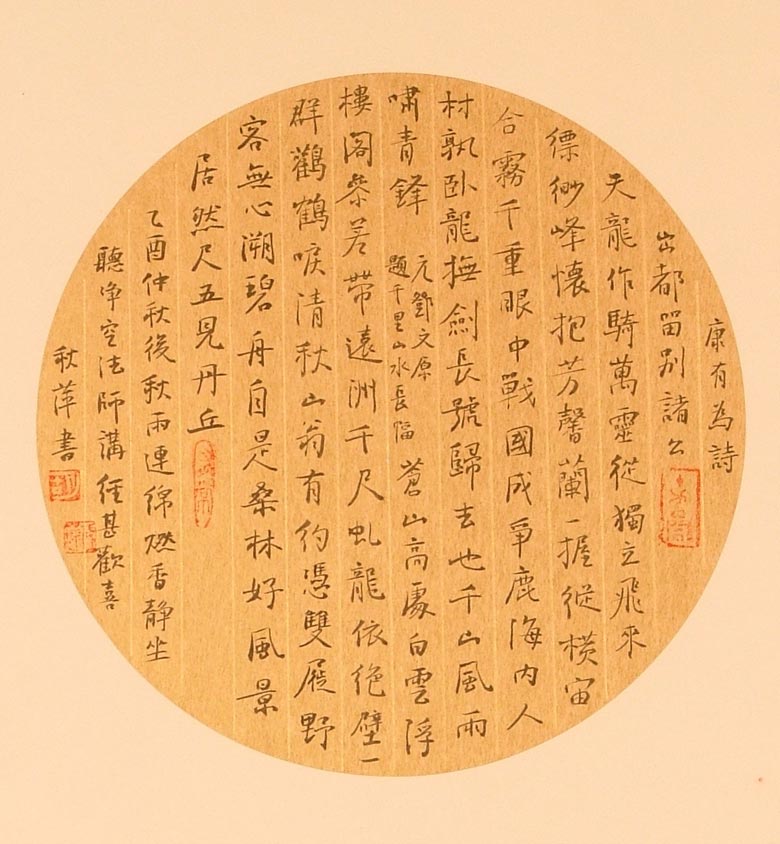 康有為詩
出都留別諸公
天龍作騎萬靈從獨立飛來
縹緲峰懷抱芳馨蘭一握縱橫宙
合霧千重眼中戰國成爭鹿海內人
材孰臥龍撫劍長號歸去也千山風雨
嘯青鋒
元鄧文原
題千里山水長幅
蒼山高處白雲浮
樓閣參差帶遠洲千尺虬龍依絕壁一
群鸛鶴唳清秋山翁有約憑雙屐野
客無心溯碧舟自是桑林好風景
居然尺五見丹丘
乙酉仲秋後秋雨連綿燃香靜坐
聽净空法師講經甚歡喜
秋萍書